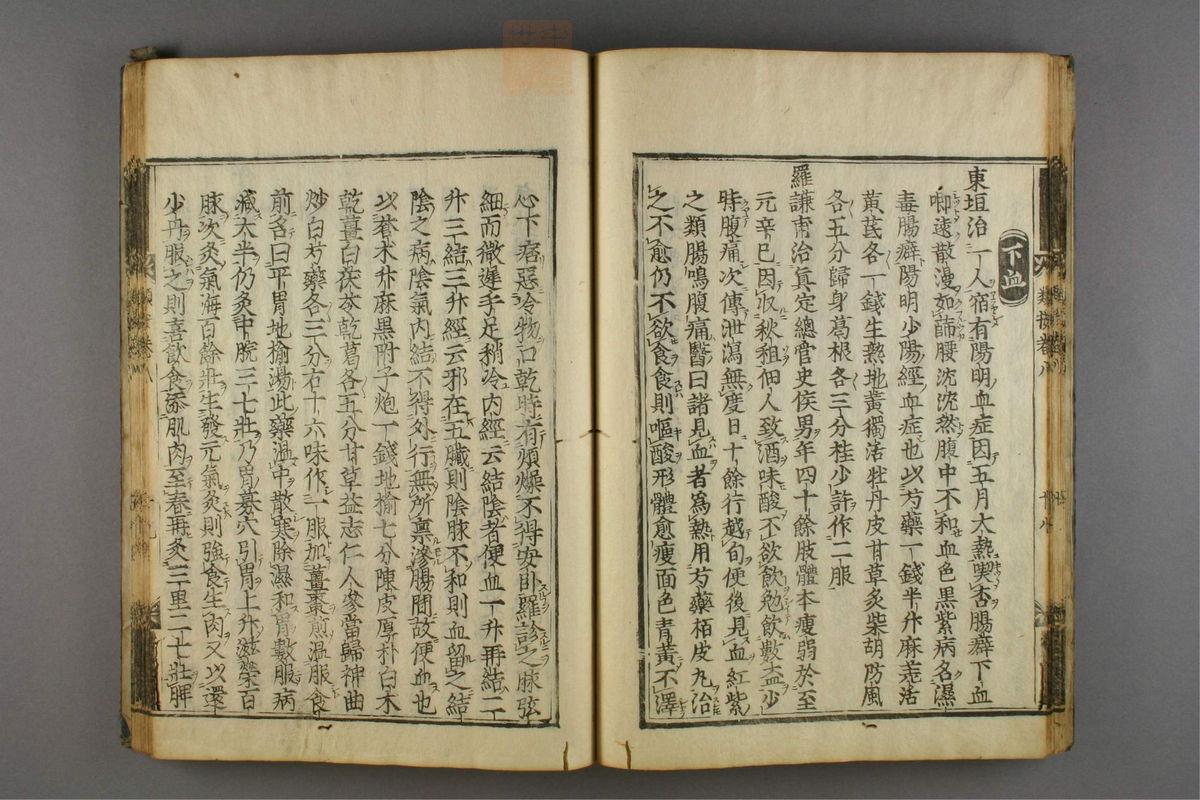 下血
東垣治一人宿有陽明血症因五月大熱喫杏腸癖下血
喞速散漫如篩腰沈沈然腹中不和血色黒紫病名濕
毒腸癖陽明少陽經血症也以芍藥一錢半升麻羌活
黄芪各一錢生熟地黄獨活牡丹皮甘草炙柴胡防風
各五分歸身葛根各三分桂少許作二服
羅謙甫治真定總管史侯男年四十餘肢體本瘦弱於至
元辛巳因収秋租佃人致酒味酸不欲飲勉飲數盃少
時腹痛次傳泄瀉無度日十餘行越旬便後見血紅紫
之類腸鳴腹痛醫曰諸見血者為熱用芍藥栢皮丸治
之不愈仍不欲食食則嘔酸形體愈瘦面色青黄不澤
心下痞惡冷物口乾時有煩燥不得安卧羅診之脉弦
細而微遲手足稍冷内經云結陰者便血一升再結二
升三結三升經云邪在五臟則陰脉不和則血留之結
陰之病陰氣内結不得外行無所禀滲腸間故便血也
以蒼朮升麻黒附子炮一錢地榆七分陳皮厚朴白朮
乾薑白茯苓乾葛各五分甘草益志仁人參當歸神曲
炒白芍藥各三分右十六味作一服加薑棗煎温服食
前名曰平胃地榆湯此藥温中散寒除濕和胃數服病
減大半仍灸中脘三七壯乃胃募穴引胃上升滋榮百
脉次灸氣海百餘壯生發元氣灸則強食生肉又以還
少丹服之則喜飲食添肌肉至春再灸三里二七壯脾